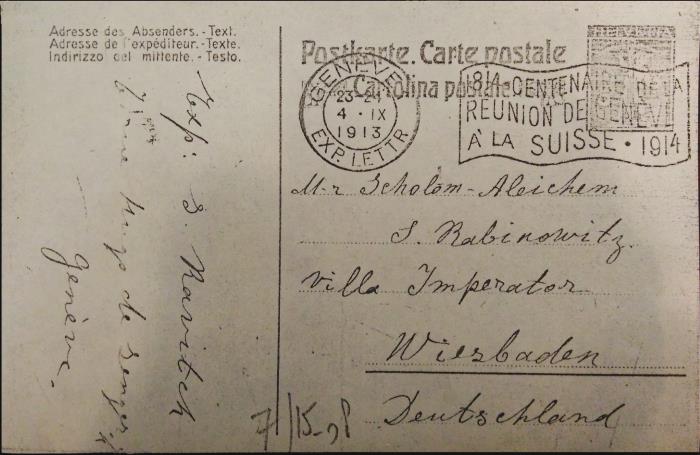 Adresse des Absenders. - Text.
Adresse de l'expéditeur. - Texte.
Indirizzo del mittente. - Testo.
Postkarte. Carte postale
Cartolina postale
GENÈVE
23-24
4 · IX
1913
EXP. LETTR.
1814 CENTENAIRE DE LA
RÉUNION DE GENÈVE
À LA SUISSE · 1914
Exp: S. Ravitch
de
Genève.
M-r Scholom-Aleichem
S. Rabinowitz.
Villa Imperator
Wiesbaden
Deutschland